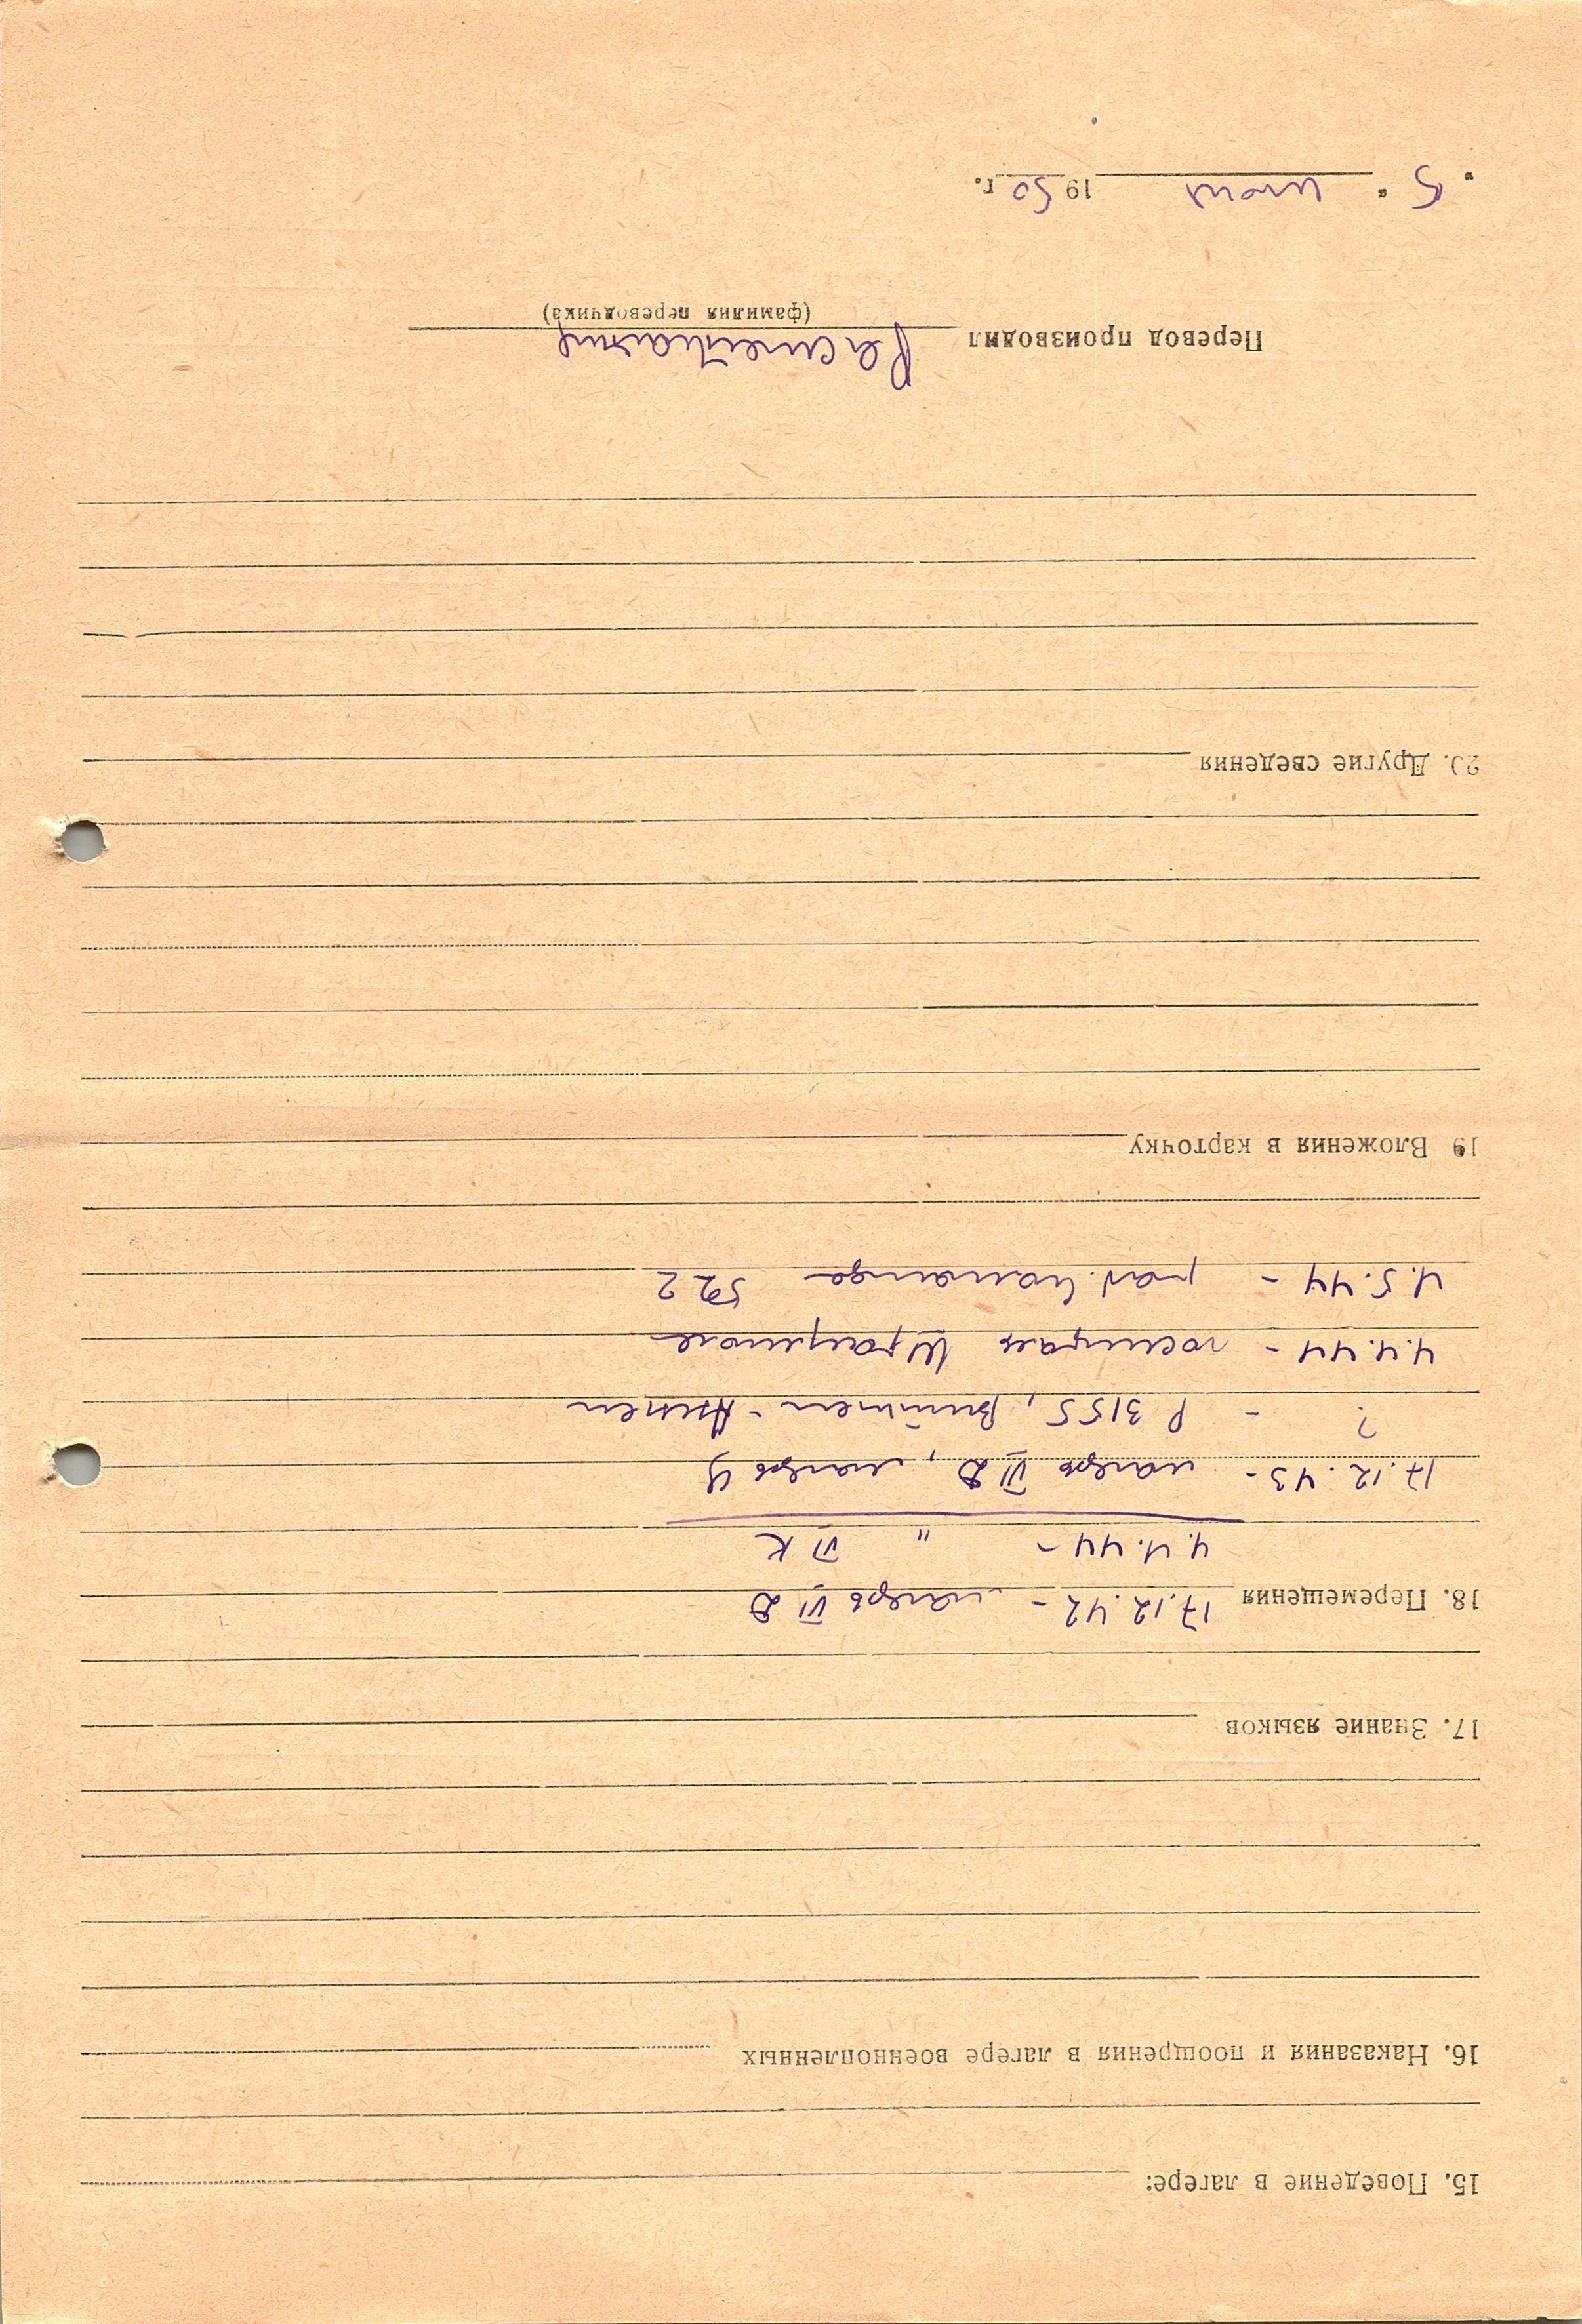 15. Поведение в лагере:
16. Наказания и поощрения в лагере военнопленных
17. Знание языков
18. Перемещения 17.12.42 – лагерь VI D
4.4.44 – " VI K
17.12.43 – лагерь VI D, лагерь
? – P 3155,
4.4.44 – госпиталь
4.5.44 – раб. команда 522
19 Вложения в карточку
20. Другие сведения
Перевод производил
(фамилия переводчика)
" 5 " 1950 г.